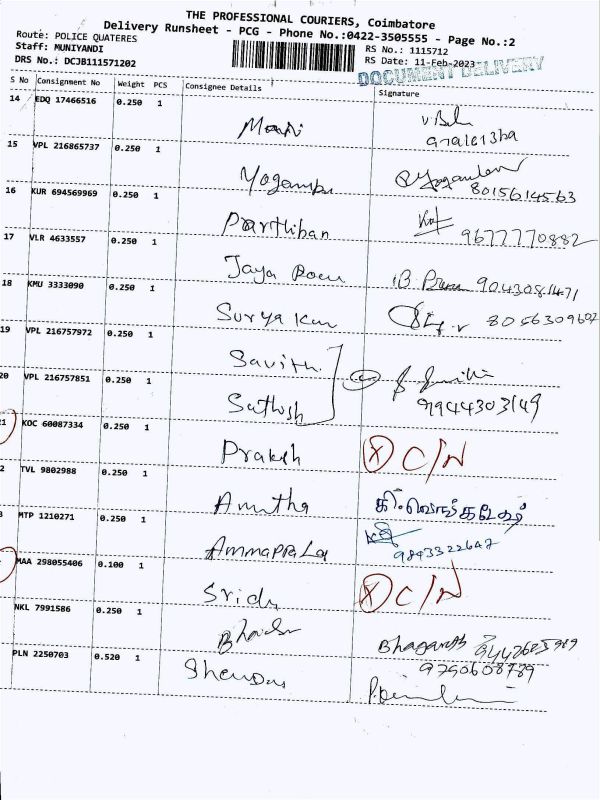 THE PROFESSIONAL COURIERS, Coimbatore
Delivery Runsheet - PCG - Phone No.:0422-3505555 - Page No.:2
Route: POLICE QUATERES
Staff: MUNIYANDI
RS No.: 1115712
DRS No.: DCJB111571202
RS Date: 11-Feb-2023
DOCUMENT DELIVERY
S No Consignment No Weight PCS Consignee Details Signature
14 EDQ 17466516 0.250 1 Mani
15 VPL 216865737 0.250 1 8015614563
16 KUR 694569969 0.250 1 Parthiban 9677770882
17 VLR 4633557 0.250 1 Jaya 9043081471
18 KMU 3333090 0.250 1 Surya 8056309602
19 VPL 216757972 0.250 1 Savith
20 VPL 216757851 0.250 1 Sathosh 9944303149
21 KOC 60087334 0.250 1 Prakash X C/N
2 TVL 9802988 0.250 1 Amutha
3 MTP 1210271 0.250 1 Ammappa 9843322647
MAA 298055406 0.100 1 Sridh X C/N
NKL 7991586 0.250 1
PLN 2250703 0.520 1 9790608789